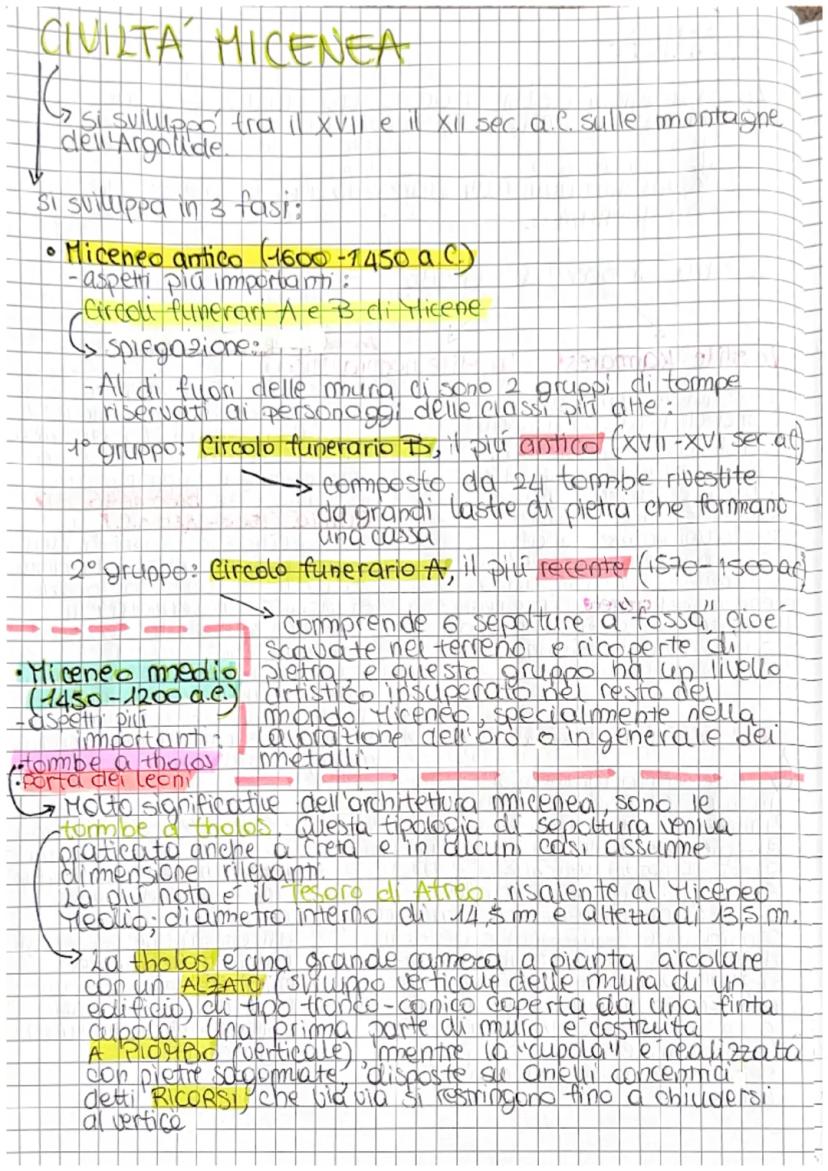 CIVILTÀ MICENEA
si sviluppò tra il XVII e il XII sec. a.C. sulle montagne
dell'Argolide.
si sviluppa in 3 fasi:
• Miceneo antico (1600-1450 a.C.)
- aspetti più importanti:
Circoli funerari A e B di Micene
spiegazione:
- Al di fuori delle mura ci sono 2 gruppi di tompe
riservati ai personaggi delle classi più alte:
1° gruppo: Circolo funerario B, il più antico (XVII-XVI sec. a.C)
composto da 24 tombe rivestite
da grandi lastre di pietra che formano
una cassa
2° gruppo: Circolo funerario A, il più recente (1570-1500 aC)
comprende 6 sepolture a "fossa", cioè
scavate nel terreno e ricoperte di
pietra, e questo gruppo ha un livello
artistico insuperato nel resto del
mondo Miceneo, specialmente nella
lavorazione dell'oro o in generale dei
metalli.
• Miceneo medio
(1450-1200 a.C.)
- aspetti più
importanti:
• tombe a tholos
• Porta dei leoni
Molto significative dell'architettura micenea, sono le
tombe a tholos. Questa tipologia di sepoltura veniva
praticato anche a Creta e in alcuni casi assume
dimensione rilevanti.
La più nota è il Tesoro di Atreo, risalente al Miceneo
Medio; diametro interno di 14,5 m e altezza di 13,5 m.
La tholos è una grande camera a pianta circolare
con un ALZATO (sviluppo verticale delle mura di un
edificio) di tipo tronco-conico coperta da una finta
cupola. Una prima parte di muro è costruita
A PIOMBO (verticale), mentre la "cupola" è realizzata
con pietre sagomate, disposte su anelli concentrici
detti RICORSI, che via via si restringono fino a chiudersi
al vertice